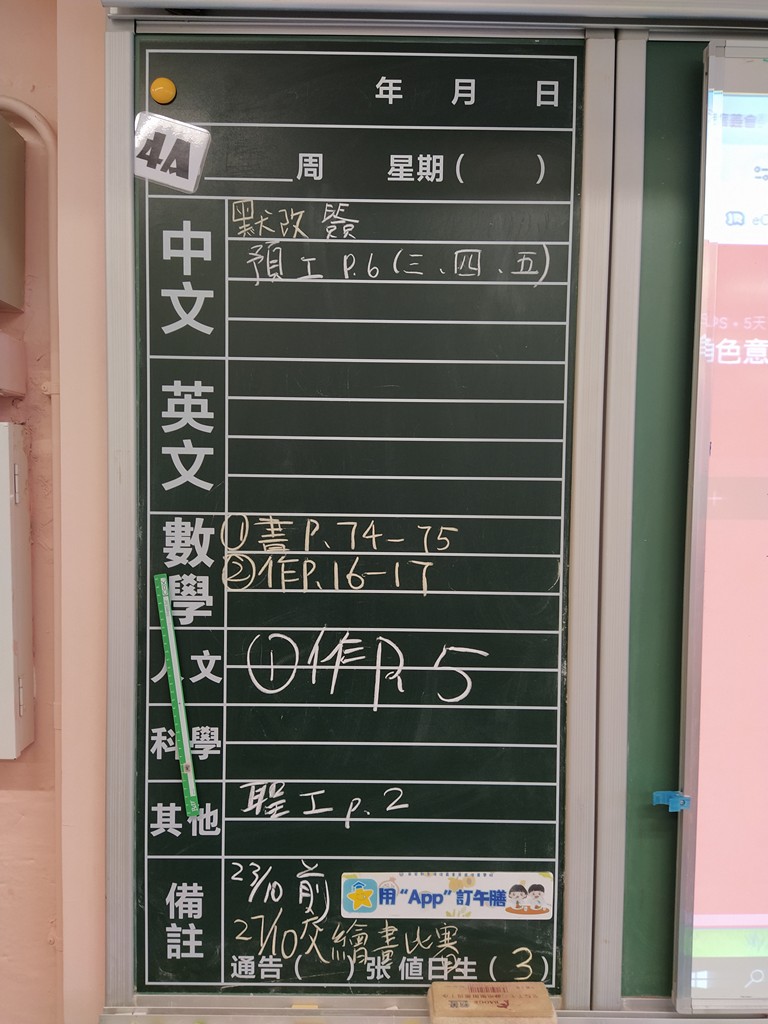 年 月 日
4A
周 星期( )
中文
默改簽
預工 P.6(三、四、五)
英文
數學
①書P.74-75
②作P.16-17
人文
①作P.5
科學
其他
聖工 p.2
備註
23/10前
用“App”訂午膳
27/10交繪畫比賽
通告( )張 值日生(3)
5天
角色意